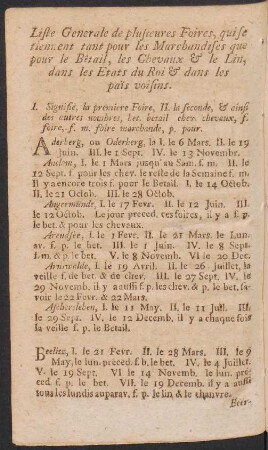 Liste Generale de plusieures Foires, qui se
tiennent tant pour les Marchandises que
pour le Bêtail, les Chevaux & le Lin,
dans les Etats du Roi & dans les
païs voisins.
I. Signifie, la prémiere Foire, II. la seconde, & ainsi
des autres nombres, bet. betail chev. chevaux, f.
foire, f. m. foire marchande, p. pour.
Aderberg, ou Oderberg, la I. le 6 Mars. II. le 19
Juin. III. le 1 Sept. IV. le 13 Novembr.
Anclam, I. le 1 Mars jusqu au Sam. f. m. II. le
12 Sept. f. pour les chev. le reste de la Semaine f. m.
Il y a encore trois f. pour le Betail. I. le 14 Octob.
II. le 21 Octob. III. le 28 Octob.
Angermünde, I. le 17 Fevr. II. le 12 Juin. III.
le 12 Octob. Le jour préced. ces foires, il y a f. p.
le bet. & pour les chevaux.
Arendsee, I. le 1 Fevr. II. le 21 Mars. le Lun.
av. f. p. le bet. III. le 1 Juin. IV. le 8 Sept.
f. m. & p. le bet. V. le 8 Novemb. VI. le 20 Dec.
Arnswalde, I. le 19 Avril. II. le 26 Juillet, la
veille f. de bet. & de chev. III. le 27 Sept. IV. le
29 Novemb. il y a aussi f. p. les chev. & p. le bet. sa-
voir le 22 Fevr. & 22 Mars.
Aschersleben, I. le 11 May. II. le 11 Juil. III.
le 29 Sept. IV. le 12 Decemb. il y a chaque fois
sa veille f. p. le Betail.
Beelitz, I. le 21 Fevr. II. le 28 Mars. III. le 9
May, le lun. préced. f. b. le bet. IV. le 4 Juillet.
V. le 19 Sept. VI le 14 Novemb. le lun. pré-
ced. f. p. le bet. VII. le 19 Decemb. il y a aussi
tous les lundis auparav. f. p. le lin & le chanvre.
Beer-